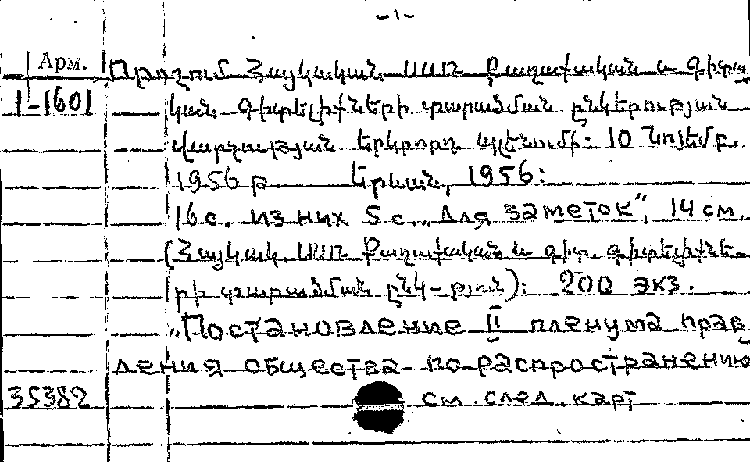 -1-
Арм. Որոշում Հայկական ՍՍՌ քաղաքական և գիտա
1-1601 կան գիտելիքների տարածման ընկերության
վարչության երկրորդ պլենումի: 10 նոյեմբ.
1956 թ Երևան, 1956:
16 с. из них 5 с. „для заметок", 14 см.
(Հայկակ. ՍՍՌ քաղաքական և գիտ. գիտելիքնե-
րի տարածման ընկ-թյուն): 200 экз.
„Постановление II пленума прав
ления общества по распространению
35382 см. след. карт